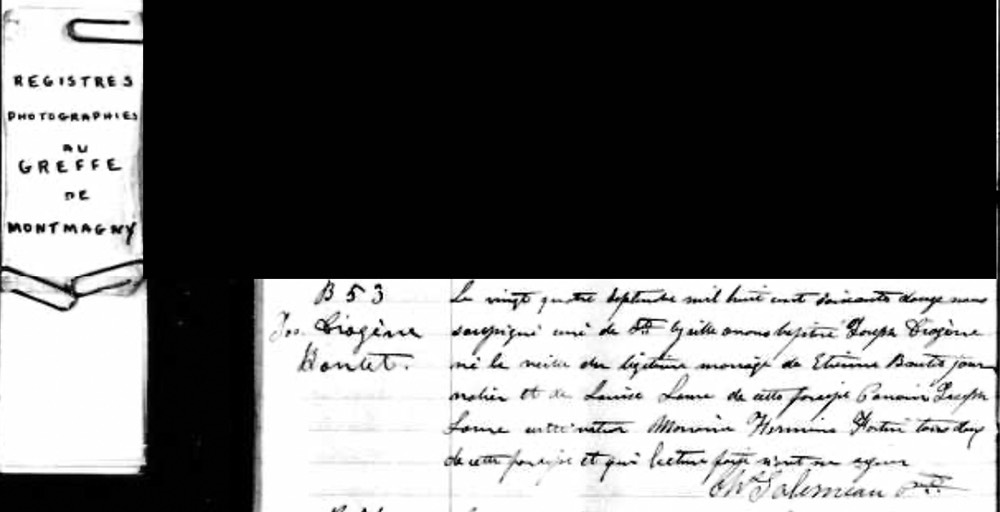 REGISTRES
PHOTOGRAPHIES
AU
GREFFE
DE
MONTMAGNY
B 53
Jos. Diogène
Boulet.
Le vingt quatre Septembre mil huit cent soixante douze nous
soussigné curé de St Cyrille avons baptisé Joseph Diogène
né la veille du légitime mariage de Etienne Boulet jour
nalier et de Louise Lame de cette paroisse Parrain Joseph
Lame cultivateur Marraine Hermine Fortin tous deux
de cette paroisse et qui lecture faite n'ont su signer
Chs Galerneau Ptre